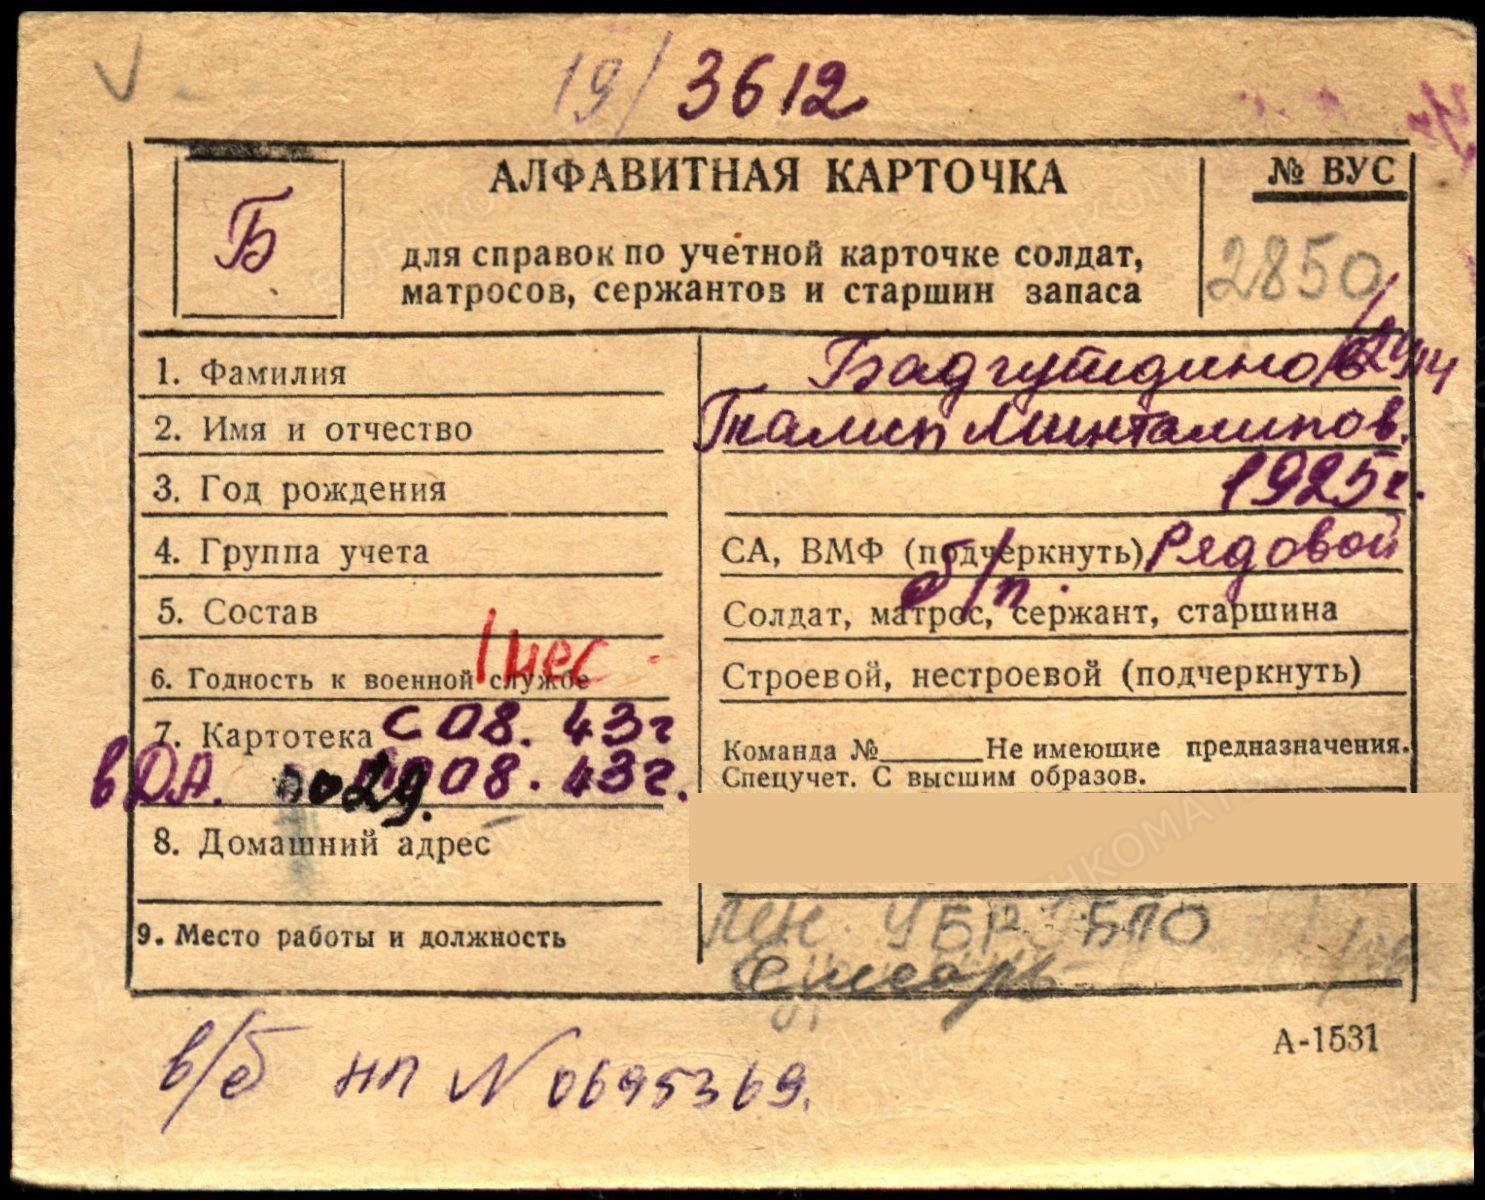 19/3612
Б
АЛФАВИТНАЯ КАРТОЧКА
для справок по учетной карточке солдат,
матросов, сержантов и старшин запаса
№ ВУС
2850
1. Фамилия
Бадгутдинов
2. Имя и отчество
Гналип Минталипов.
3. Год рождения
1925г.
4. Группа учета
СА, ВМФ (подчеркнуть) Рядовой
5. Состав
б/п.
Солдат, матрос, сержант, старшина
6. Годность к военной службе
Строевой, нестроевой (подчеркнуть)
1 мес
7. Картотека с 08. 43г
Команда №______Не имеющие предназначения.
Спецучет. С высшим образов.
в ДА. по 29. 08. 43г.
8. Домашний адрес
9. Место работы и должность
Лен. УБР БПО
Слесарь
А-1531
в/б нп N 0695369.